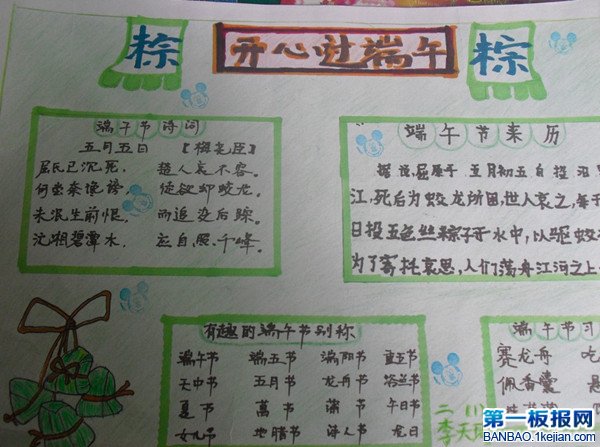 粽 开心过端午 粽
端午节诗词
五月五日 【梅尧臣】
屈氏已沉死, 楚人哀不容。
何尝奈谗谤, 徒欲却蛟龙。
未泯生前恨, 而追没后踪。
沅湘碧潭水, 应自照千峰。
端午节来历
据说屈原于五月初五自投汨
江,死后为蛟龙所困,世人哀之,每于
日投五色丝粽子于水中,以驱蛟
为了寄托哀思,人们荡舟江河之上
有趣的端午节别称
端午节 端五节 端阳节 重五节
天中节 五月节 龙舟节 浴兰节
夏节 菖节 蒲节 午日节
女儿节 地腊节 诗人节 龙日
端午节习
赛龙舟 吃
佩香囊 悬
二 川
李天
第一板报网
BANBAO.1kejian.com